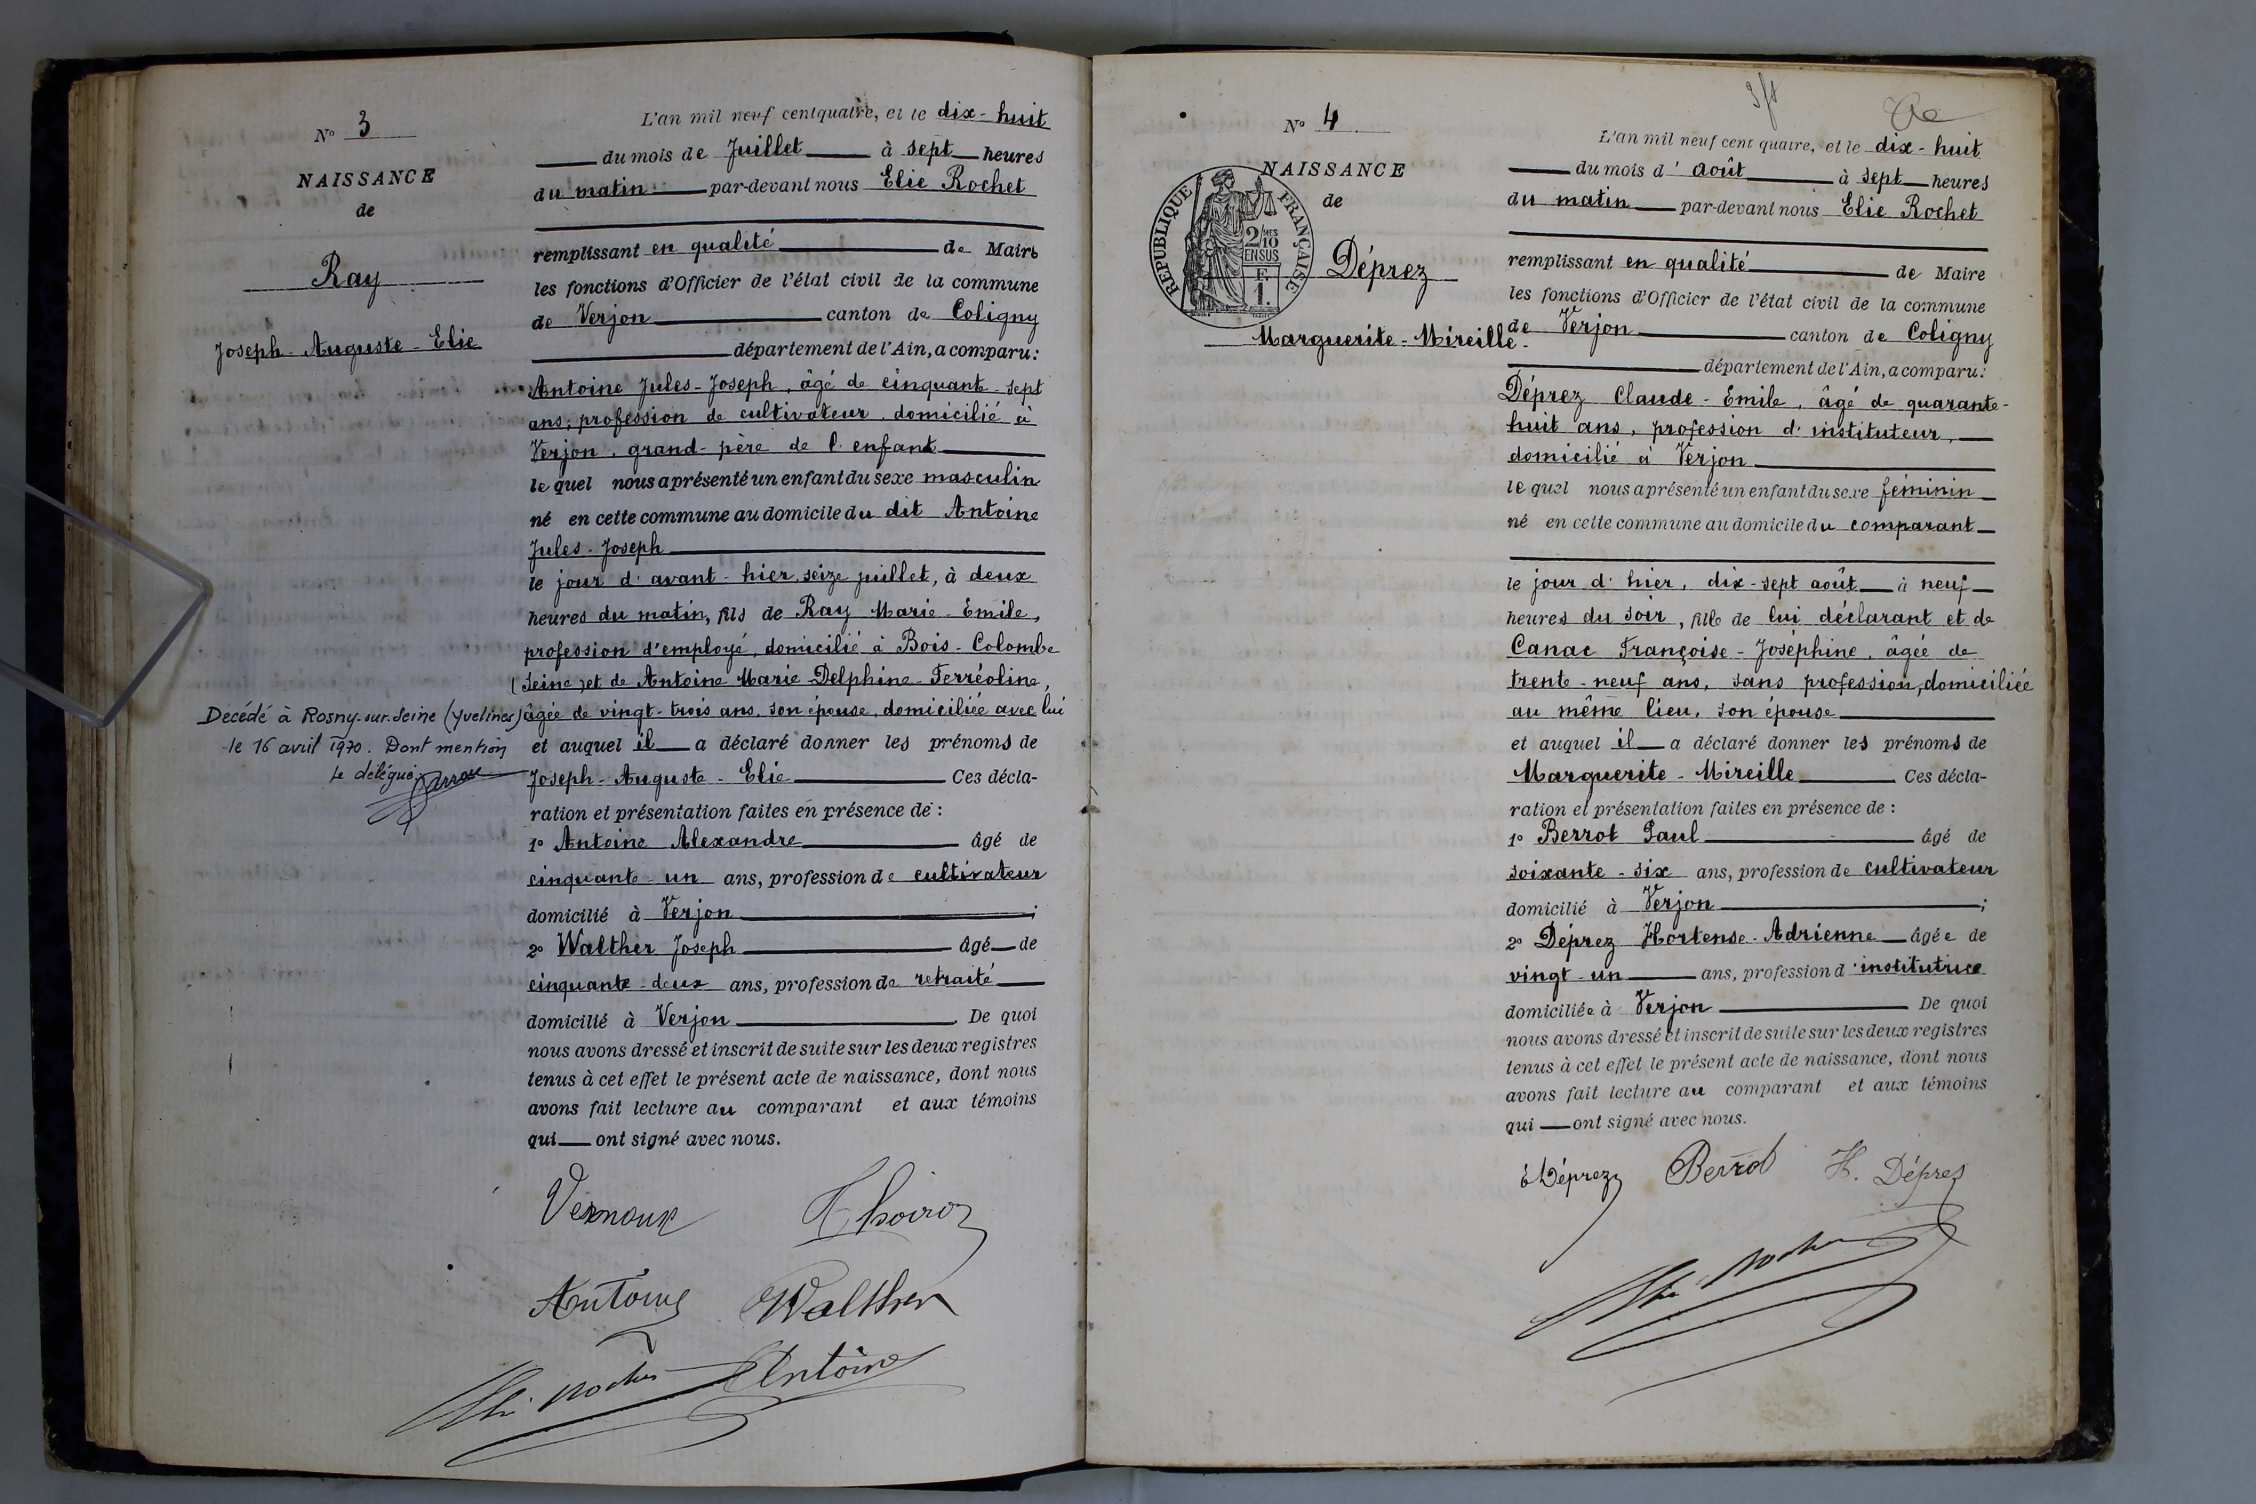 N° 3
NAISSANCE
de
Ray
Joseph-Auguste-Elie
Décédé à Rosny-sur-Seine (Yvelines)
le 16 avril 1970. Dont mention
Le délégué,
L'an mil neuf cent quatre, et le dix-huit
du mois de Juillet à sept heures
du matin par-devant nous Elie Rochet
remplissant en qualité de Maire
les fonctions d'Officier de l'état civil de la commune
de Verjon canton de Coligny
département de l'Ain, a comparu:
Antoine Jules-Joseph, âgé de cinquante-sept
ans, profession de cultivateur, domicilié à
Verjon, grand-père de l'enfant
lequel nous a présenté un enfant du sexe masculin
né en cette commune au domicile du dit Antoine
Jules-Joseph
le jour d'avant-hier, seize juillet, à deux
heures du matin, fils de Ray Marie-Emile,
profession d'employé, domicilié à Bois-Colombe
(Seine) et de Antoine Marie-Delphine-Ferréoline,
âgée de vingt-trois ans, son épouse, domiciliée avec lui
et auquel il a déclaré donner les prénoms de
Joseph-Auguste-Elie Ces décla-
ration et présentation faites en présence de :
1° Antoine Alexandre âgé de
cinquante-un ans, profession de cultivateur
domicilié à Verjon ;
2° Walther Joseph âgé de
cinquante-deux ans, profession de retraité
domicilié à Verjon De quoi
nous avons dressé et inscrit de suite sur les deux registres
tenus à cet effet le présent acte de naissance, dont nous
avons fait lecture au comparant et aux témoins
qui ont signé avec nous.
Vernoux Thoiroz
Antoine Walther
Elie Rochet Antoine
N° 4
NAISSANCE
de
RÉPUBLIQUE FRANÇAISE
2/10 MES
EN SUS
F.
1.
Déprez
Marguerite-Mireille-
L'an mil neuf cent quatre, et le dix-huit
du mois d'août à sept heures
du matin par-devant nous Elie Rochet
remplissant en qualité de Maire
les fonctions d'Officier de l'état civil de la commune
de Verjon canton de Coligny
département de l'Ain, a comparu:
Déprez Claude-Emile, âgé de quarante-
huit ans, profession d'instituteur,
domicilié à Verjon
lequel nous a présenté un enfant du sexe féminin
né en cette commune au domicile du comparant
le jour d'hier, dix-sept août à neuf
heures du soir, fille de lui déclarant et de
Canac Françoise-Joséphine, âgée de
trente-neuf ans, sans profession, domiciliée
au même lieu, son épouse
et auquel il a déclaré donner les prénoms de
Marguerite-Mireille Ces décla-
ration et présentation faites en présence de :
1° Berrot Paul âgé de
soixante-six ans, profession de cultivateur
domicilié à Verjon ;
2° Déprez Hortense-Adrienne âgée de
vingt-un ans, profession d'institutrice
domiciliée à Verjon De quoi
nous avons dressé et inscrit de suite sur les deux registres
tenus à cet effet le présent acte de naissance, dont nous
avons fait lecture au comparant et aux témoins
qui ont signé avec nous.
E Déprez Berrot H. Déprez
Elie Rochet